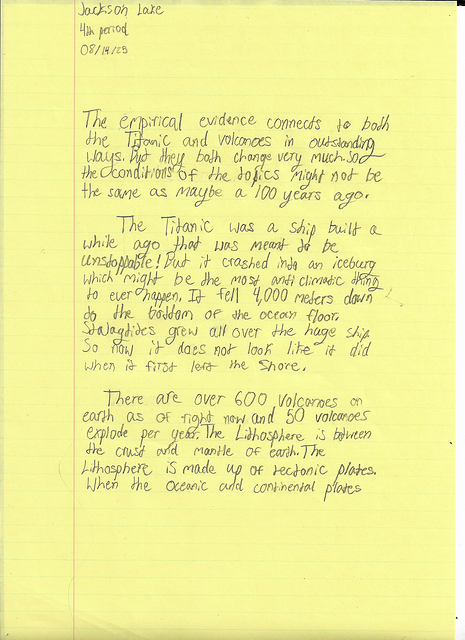 Jackson Lake
4th period
08/14/25
The empirical evidence connects to both
the Titanic and volcanoes in outstanding
ways. But they both change very much. So
the conditions of the topics might not be
the same as maybe a 100 years ago.
The Titanic was a ship built a
while ago that was meant to be
unstoppable! But it crashed into an iceburg
which might be the most anti climatic thing
to ever happen, It fell 4,000 meters down
to the bottom of the ocean floor.
Stalagtites grew all over the huge ship
So now it does not look like it did
when it first left the shore.
There are over 600 volcanoes on
earth as of right now and 50 volcanoes
explode per year. The Lithosphere is between
the crust and mantle of earth. The
Lithosphere is made up of tectonic plates.
When the oceanic and continental plates